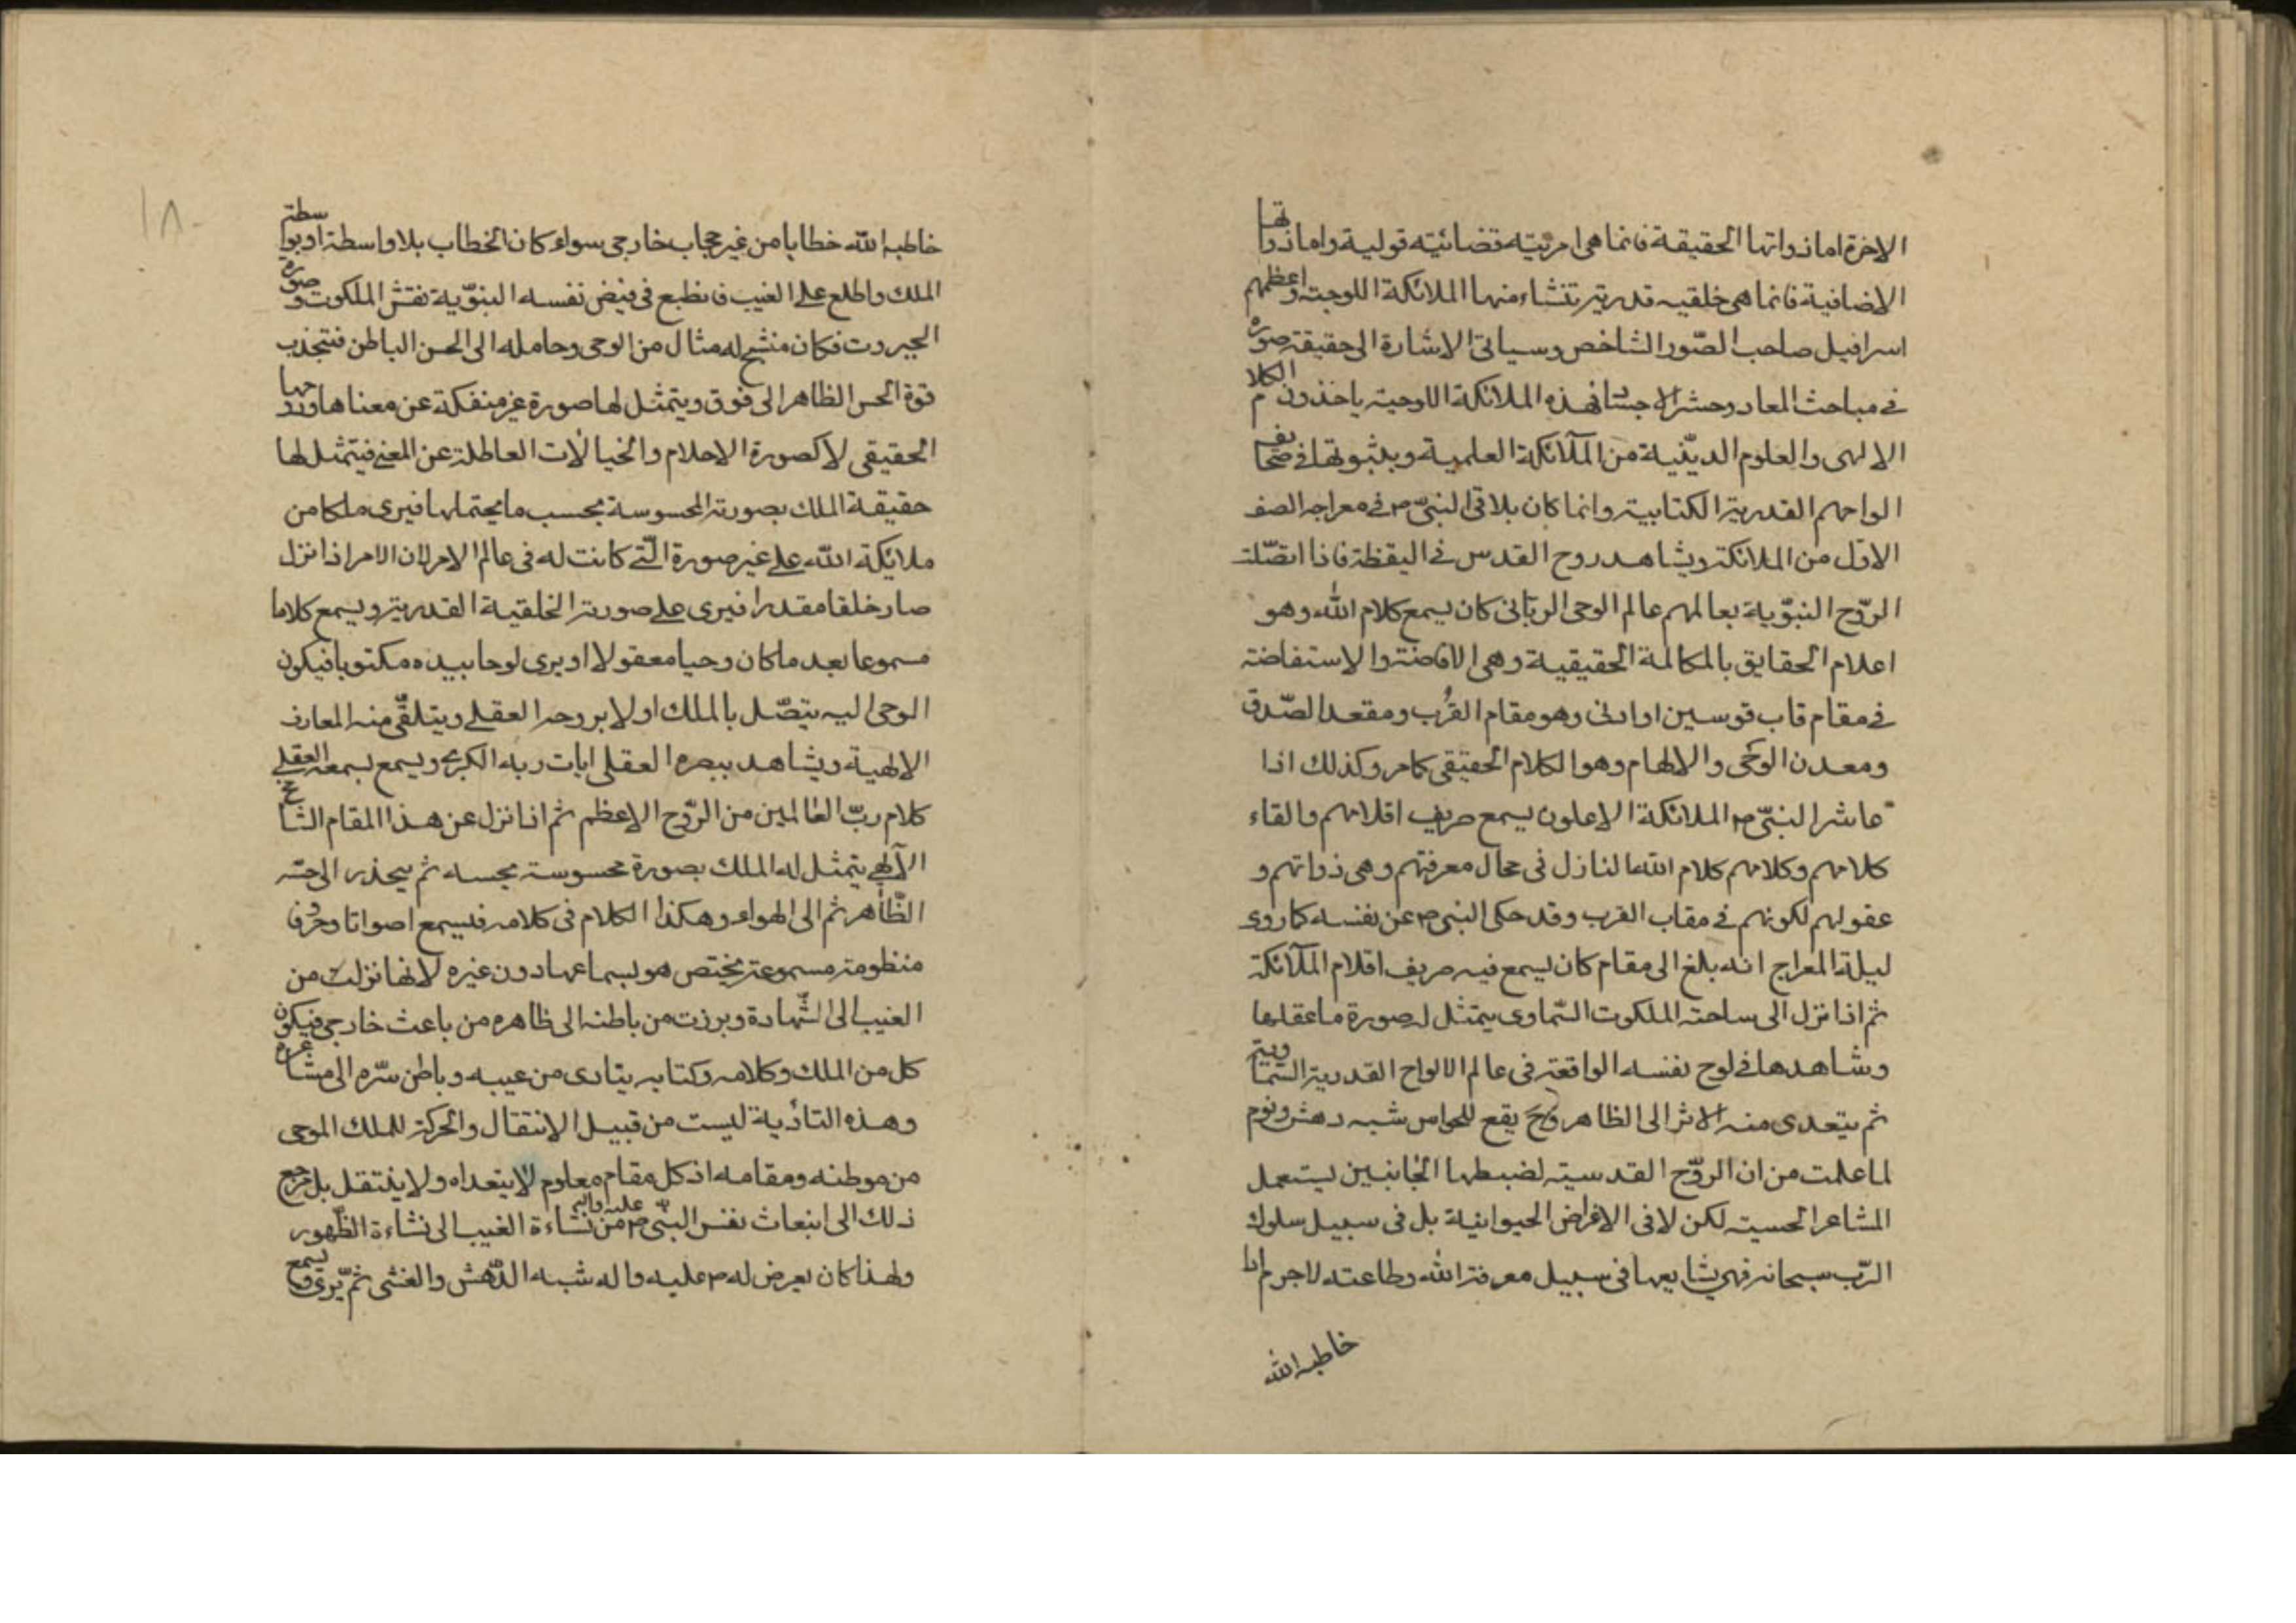 الاخرة اما ذواتها الحقيقة فانما هى امريته قضائيته قولية واما ذواتها
الاضافية فانما هى خلقيه قدريته تنشاء منها الملائكة اللوحيته واعظمهم
اسرافيل صاحب الصّور الشاخص وسياتى الاشارة الى حقيقته صوره
فى مباحث المعاد وحشر الاجساد فهذه الملائكة اللوحيته ياخذون الكلام
الالهى والعلوم الدينية من الملآئكة العلمية ويثبوتها فى صحايف
الواحهم القدرية الكتابية وانما كان يلاقى النبى ص فى معراجه الصف
الاوّل من الملائكة ويشاهد روح القدس فى اليقظة فاذا اتصّلت
الرّوح النبوّية بعالمهم عالم الوحى الربانى كان يسمع كلام الله وهو
اعلام الحقايق بالمكالمة الحقيقية وهى الافاضة والاستفاضة
فى مقام قاب قوسين او ادنى وهو مقام القُرب ومقعد الصّدق
ومعدن الوحى والالهام وهو الكلام الحقيقى كما مر وكذلك اذا
عاشر النبّى ص الملائكة الاعلون يسمع صريف اقلامهم والقاء
كلامهم وكلامهم كلام الله النازل فى محال معرفتهم وهى ذواتهم و
عقولهم لكونهم فى مقاب القرب وقد حكى النبى ص عن نفسه كما روى
ليلة المعراج انه بلغ الى مقام كان يسمع فيه صريف اقلام الملآئكة
ثم اذا نزل الى ساحته الملكوت السّماوى يتمثل له صورة ما عقلها
وشاهدها فى لوح نفسه الواقعة فى عالم الالواح القدرية السّماويته
ثم يتعدى منه الاثر الى الظاهر وح يقع للحواس شبه دهش ونوم
لما علمت من ان الرّوح القدسيته لضبطها الجانبين يستعمل
المشاعر الحسيته لكن لا فى الاغراض الحيوانية بل فى سبيل سلوك
الرّب سبحانه فهى يشايعها فى سبيل معرفة الله وطاعته لاجرم اذا
خاطبه الله
١٨٠
خاطبه الله خطابا من غير حجاب خارجى سواء كان الخطاب بلا واسطة او بواسطة
الملك واطلع على الغيب فانطبع فى فيض نفسه النبوّية نقش الملكوت وصورة
الجبروت فكان منشبح له مثال من الوحى وحامله الى الحس الباطن فتنجذب
قوة الحس الظاهر الى فوق ويتمثل لها صورة غير منفكة عن معناها وروحها
الحقيقى لا كصورة الاحلام والخيالات العاطلة عن المعنى فيتمثل لها
حقيقة الملك بصورته المحسوسة بحسب ما يحتملها فيرى ملكا من
ملائكة الله على غير صورة الّتى كانت له فى عالم الامر لان الامر اذا نزل
صار خلقا مقدرا فيرى على صورته الخلقية القدرية ويسمع كلاما
مسموعا بعد ما كان وحيا معقولا او يرى لوحا بيده مكتوبا فيكون
الوحى اليه يتصّل بالملك اولا بروحه العقلى ويتلقّى منه المعارف
الالهية ويشاهد ببصره العقلى ايات ربه الكبرى ويسمع بسمعه العقلى
كلام ربّ العالمين من الرّوح الاعظم ثم اذا نزل عن هذا المقام الشامخ
الآلهى يتمثل له الملك بصورة محسوسة بحسه ثم ينحذر الى حسّه
الظّاهر ثم الى الهواء وهكذا الكلام فى كلامه فيسمع اصواتا وحروفا
منظومة مسموعة يختص هو بسماعها دون غيره لانها نزلت من
الغيب الى الشّهادة وبرزت من باطنه الى ظاهره من باعث خارجى فيكون
كل من الملك وكلامه وكتابه يتادى من غيبه وباطن سّره الى مشاعره
وهذه التادّية ليست من قبيل الانتقال والحركة للملك الموحى
من موطنه ومقامه اذ كل مقام معلوم لا يتعداه ولا ينتقل بل مرجع
ذلك الى انبعاث نفس النبّى ص عليه واله من نشاءة الغيب الى نشاءة الظّهور
ولهذا كان يعرض له ص عليه واله شبه الدّهش والغشى ثم يّرى ويسمع